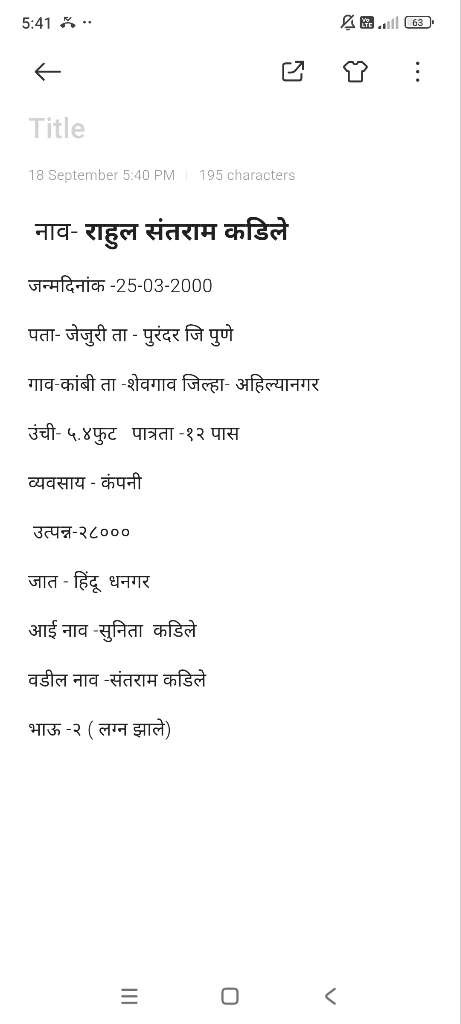 5:41
Vo LTE
63
Title
18 September 5:40 PM | 195 characters
नाव- राहुल संतराम कडिले
जन्मदिनांक -25-03-2000
पता- जेजुरी ता - पुरंदर जि पुणे
गाव-कांबी ता -शेवगाव जिल्हा- अहिल्यानगर
उंची- ५.४फुट पात्रता -१२ पास
व्यवसाय - कंपनी
उत्पन्न-२८०००
जात - हिंदू धनगर
आई नाव -सुनिता कडिले
वडील नाव -संतराम कडिले
भाऊ -२ ( लग्न झाले)